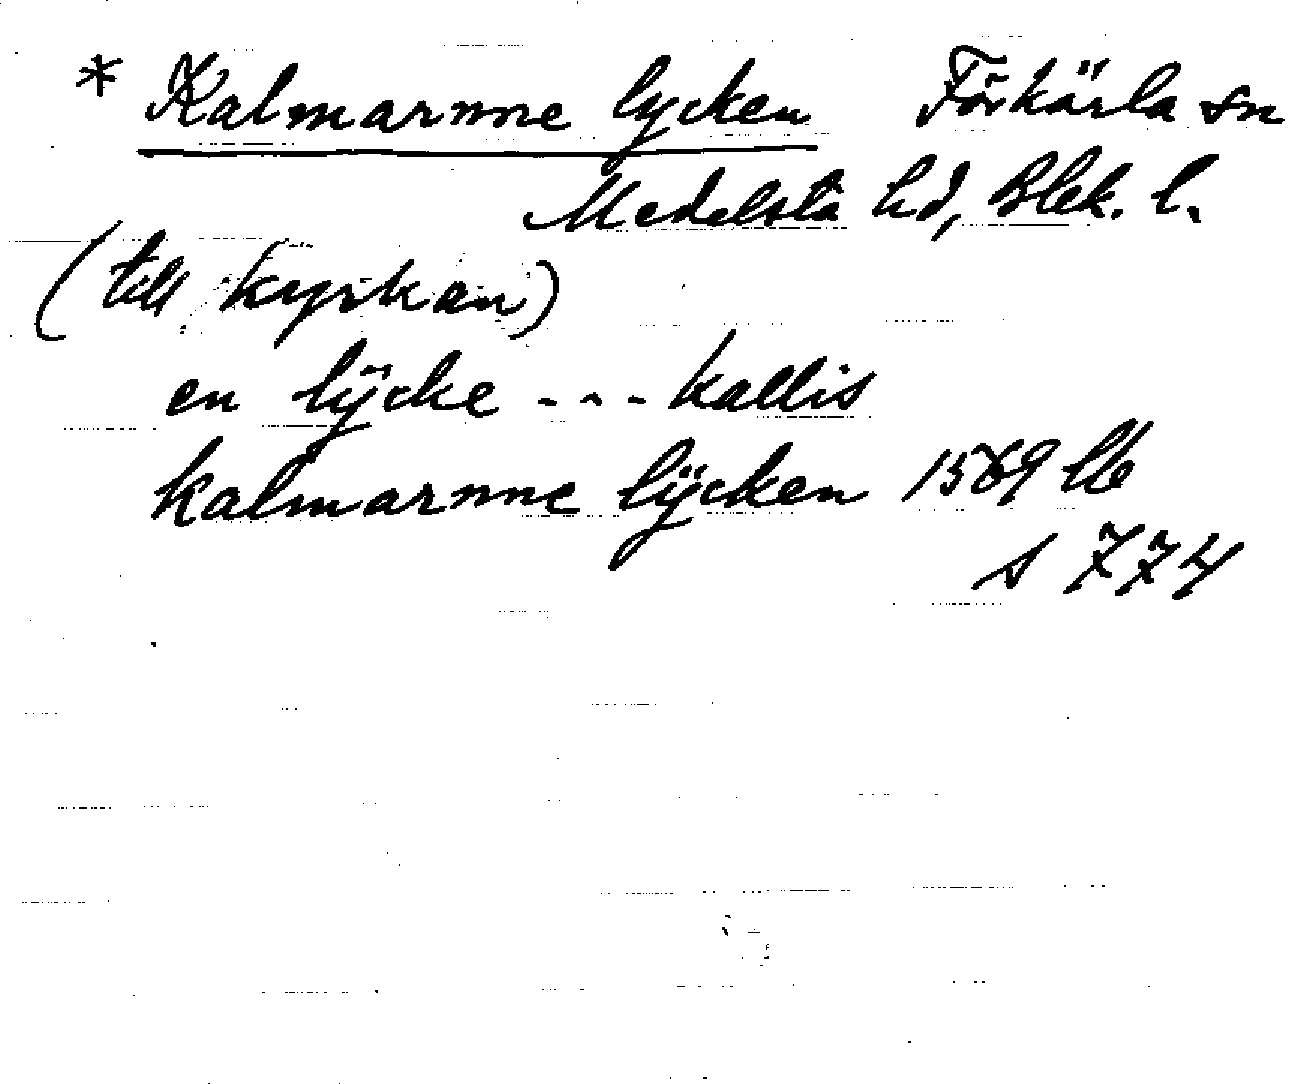 * Kalmarnne lycken Förkärla sn
Medelsta hd, Blek. l.
(till kyrkan)
en lÿcke - - - kallis
kalmarnne lÿcken 1569 lb
s 774